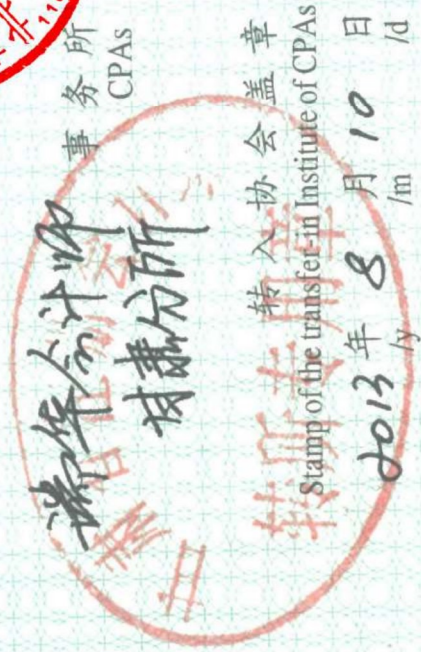 瑞华会计师 事务所
甘肃分所 CPAs
转入协会盖章
Stamp of the transfer-in Institute of CPAs
2013年 8月 10日
/y /m /d
转所专用章
110